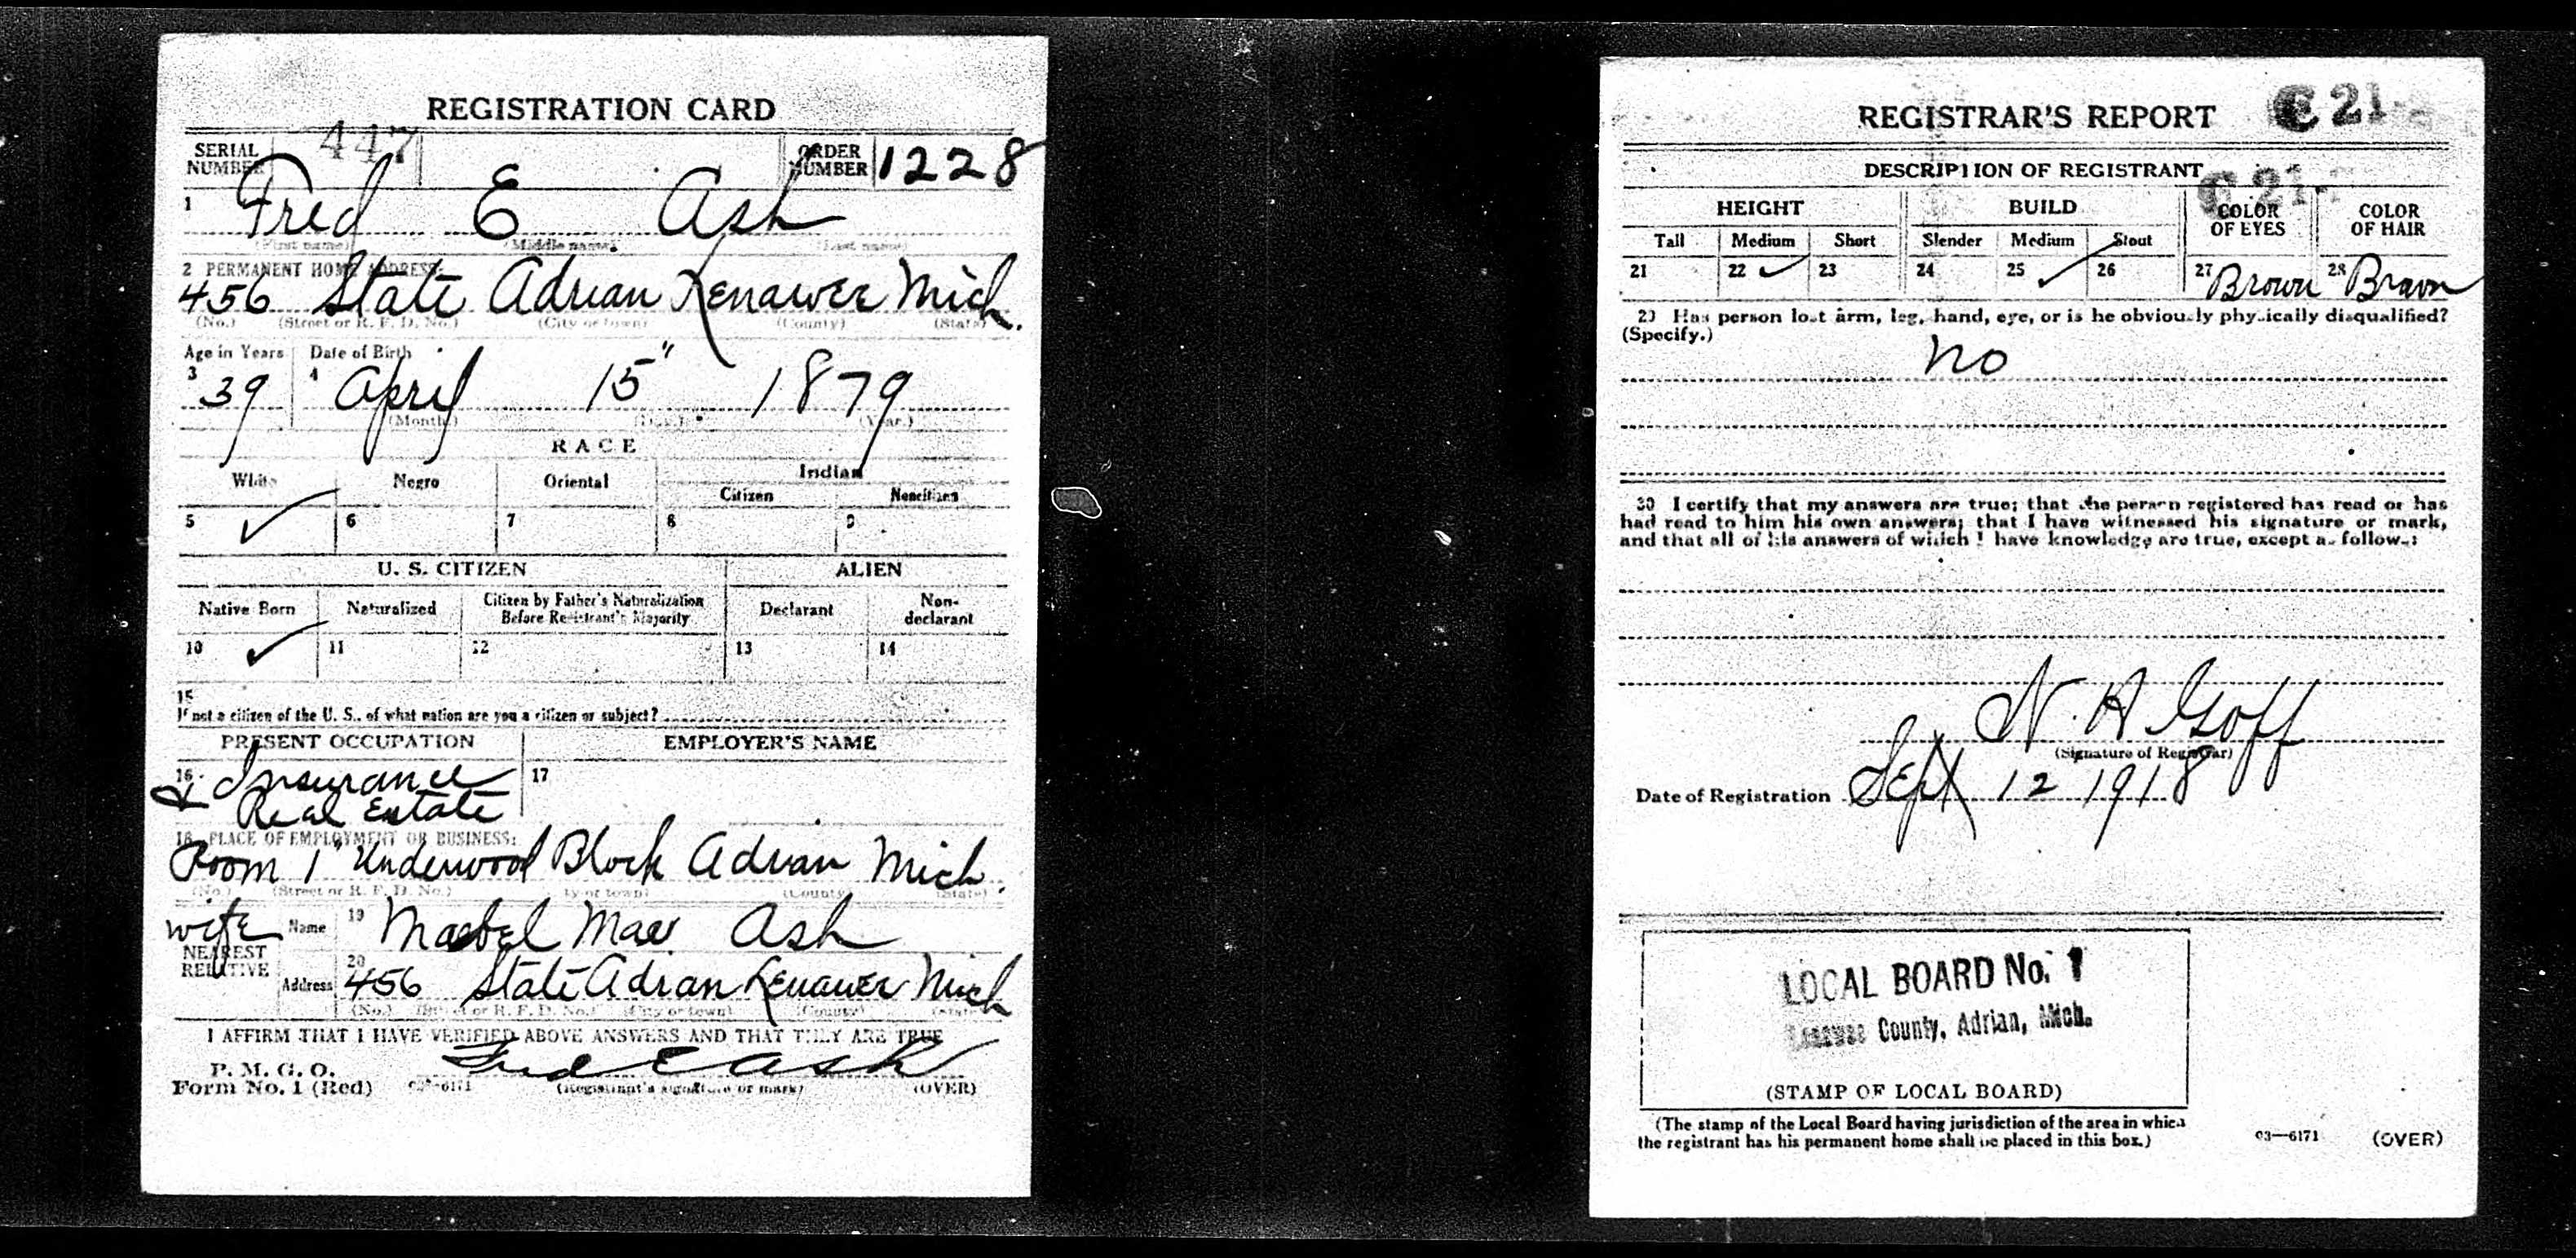 REGISTRATION CARD
SERIAL NUMBER 447 ORDER NUMBER 1228
1 Fred E Ash
(First name) (Middle name) (Last name)
2 PERMANENT HOME ADDRESS:
456 State Adrian Lenawee Mich.
(No.) (Street or R. F. D. No.) (City or town) (County) (State)
Age in Years Date of Birth
3 39 4 April 15" 1879
(Month.) (Day.) (Year.)
RACE
White Negro Oriental Indian
Citizen Noncitizen
5 ✓ 6 7 8 9
U. S. CITIZEN ALIEN
Native Born Naturalized Citizen by Father's Naturalization Before Registrant's Majority Declarant Non-declarant
10 ✓ 11 12 13 14
15
If not a citizen of the U. S., of what nation are you a citizen or subject?
PRESENT OCCUPATION EMPLOYER'S NAME
16 Insurance 17
& Real Estate
18 PLACE OF EMPLOYMENT OR BUSINESS:
Room 1" Underwood Block Adrian Mich.
(No.) (Street or R. F. D. No.) (City or town) (County) (State)
wife Name 19 Maebel Mae Ash
NEAREST RELATIVE
Address 20 456 State Adrian Lenawee Mich
(No.) (Street or R. F. D. No.) (City or town) (County) (State)
I AFFIRM THAT I HAVE VERIFIED ABOVE ANSWERS AND THAT THEY ARE TRUE
P. M. G. O.
Form No. 1 (Red) 03—6171 Fred E Ash
(Registrant's signature or mark) (OVER)
REGISTRAR'S REPORT C 21
DESCRIPTION OF REGISTRANT
C 21
HEIGHT BUILD COLOR OF EYES COLOR OF HAIR
Tall Medium Short Slender Medium Stout
21 22 ✓ 23 24 25 ✓ 26 27 Brown 28 Brown
29 Has person lost arm, leg, hand, eye, or is he obviously physically disqualified?
(Specify.)
no
30 I certify that my answers are true; that the person registered has read or has
had read to him his own answers; that I have witnessed his signature or mark,
and that all of his answers of which I have knowledge are true, except as follows:
N. A Goff
(Signature of Registrar)
Date of Registration Sept 12 1918
LOCAL BOARD No. 1
Lenawee County, Adrian, Mich.
(STAMP OF LOCAL BOARD)
(The stamp of the Local Board having jurisdiction of the area in which
the registrant has his permanent home shall be placed in this box.)
03—6171 (OVER)